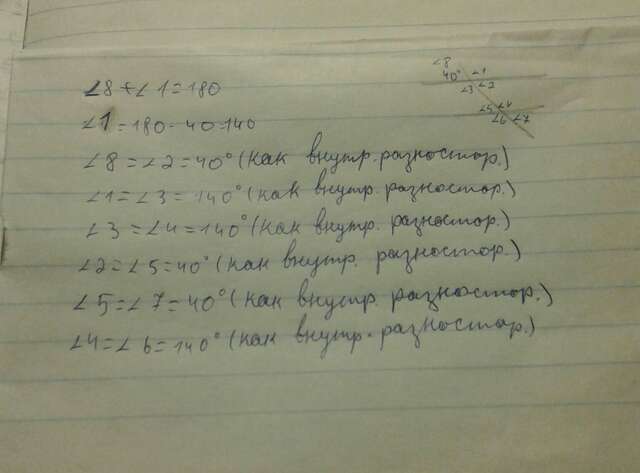 ∠8 + ∠1 = 180
∠1 = 180 - 40 = 140
∠8 = ∠2 = 40° (как внутр. разностор.)
∠1 = ∠3 = 140° (как внутр. разностор.)
∠3 = ∠4 = 140° (как внутр. разностор.)
∠2 = ∠5 = 40° (как внутр. разностор.)
∠5 = ∠7 = 40° (как внутр. разностор.)
∠4 = ∠6 = 140° (как внутр. разностор.)
∠8
40° ∠1
∠3 ∠2
∠5 ∠4
∠6 ∠7